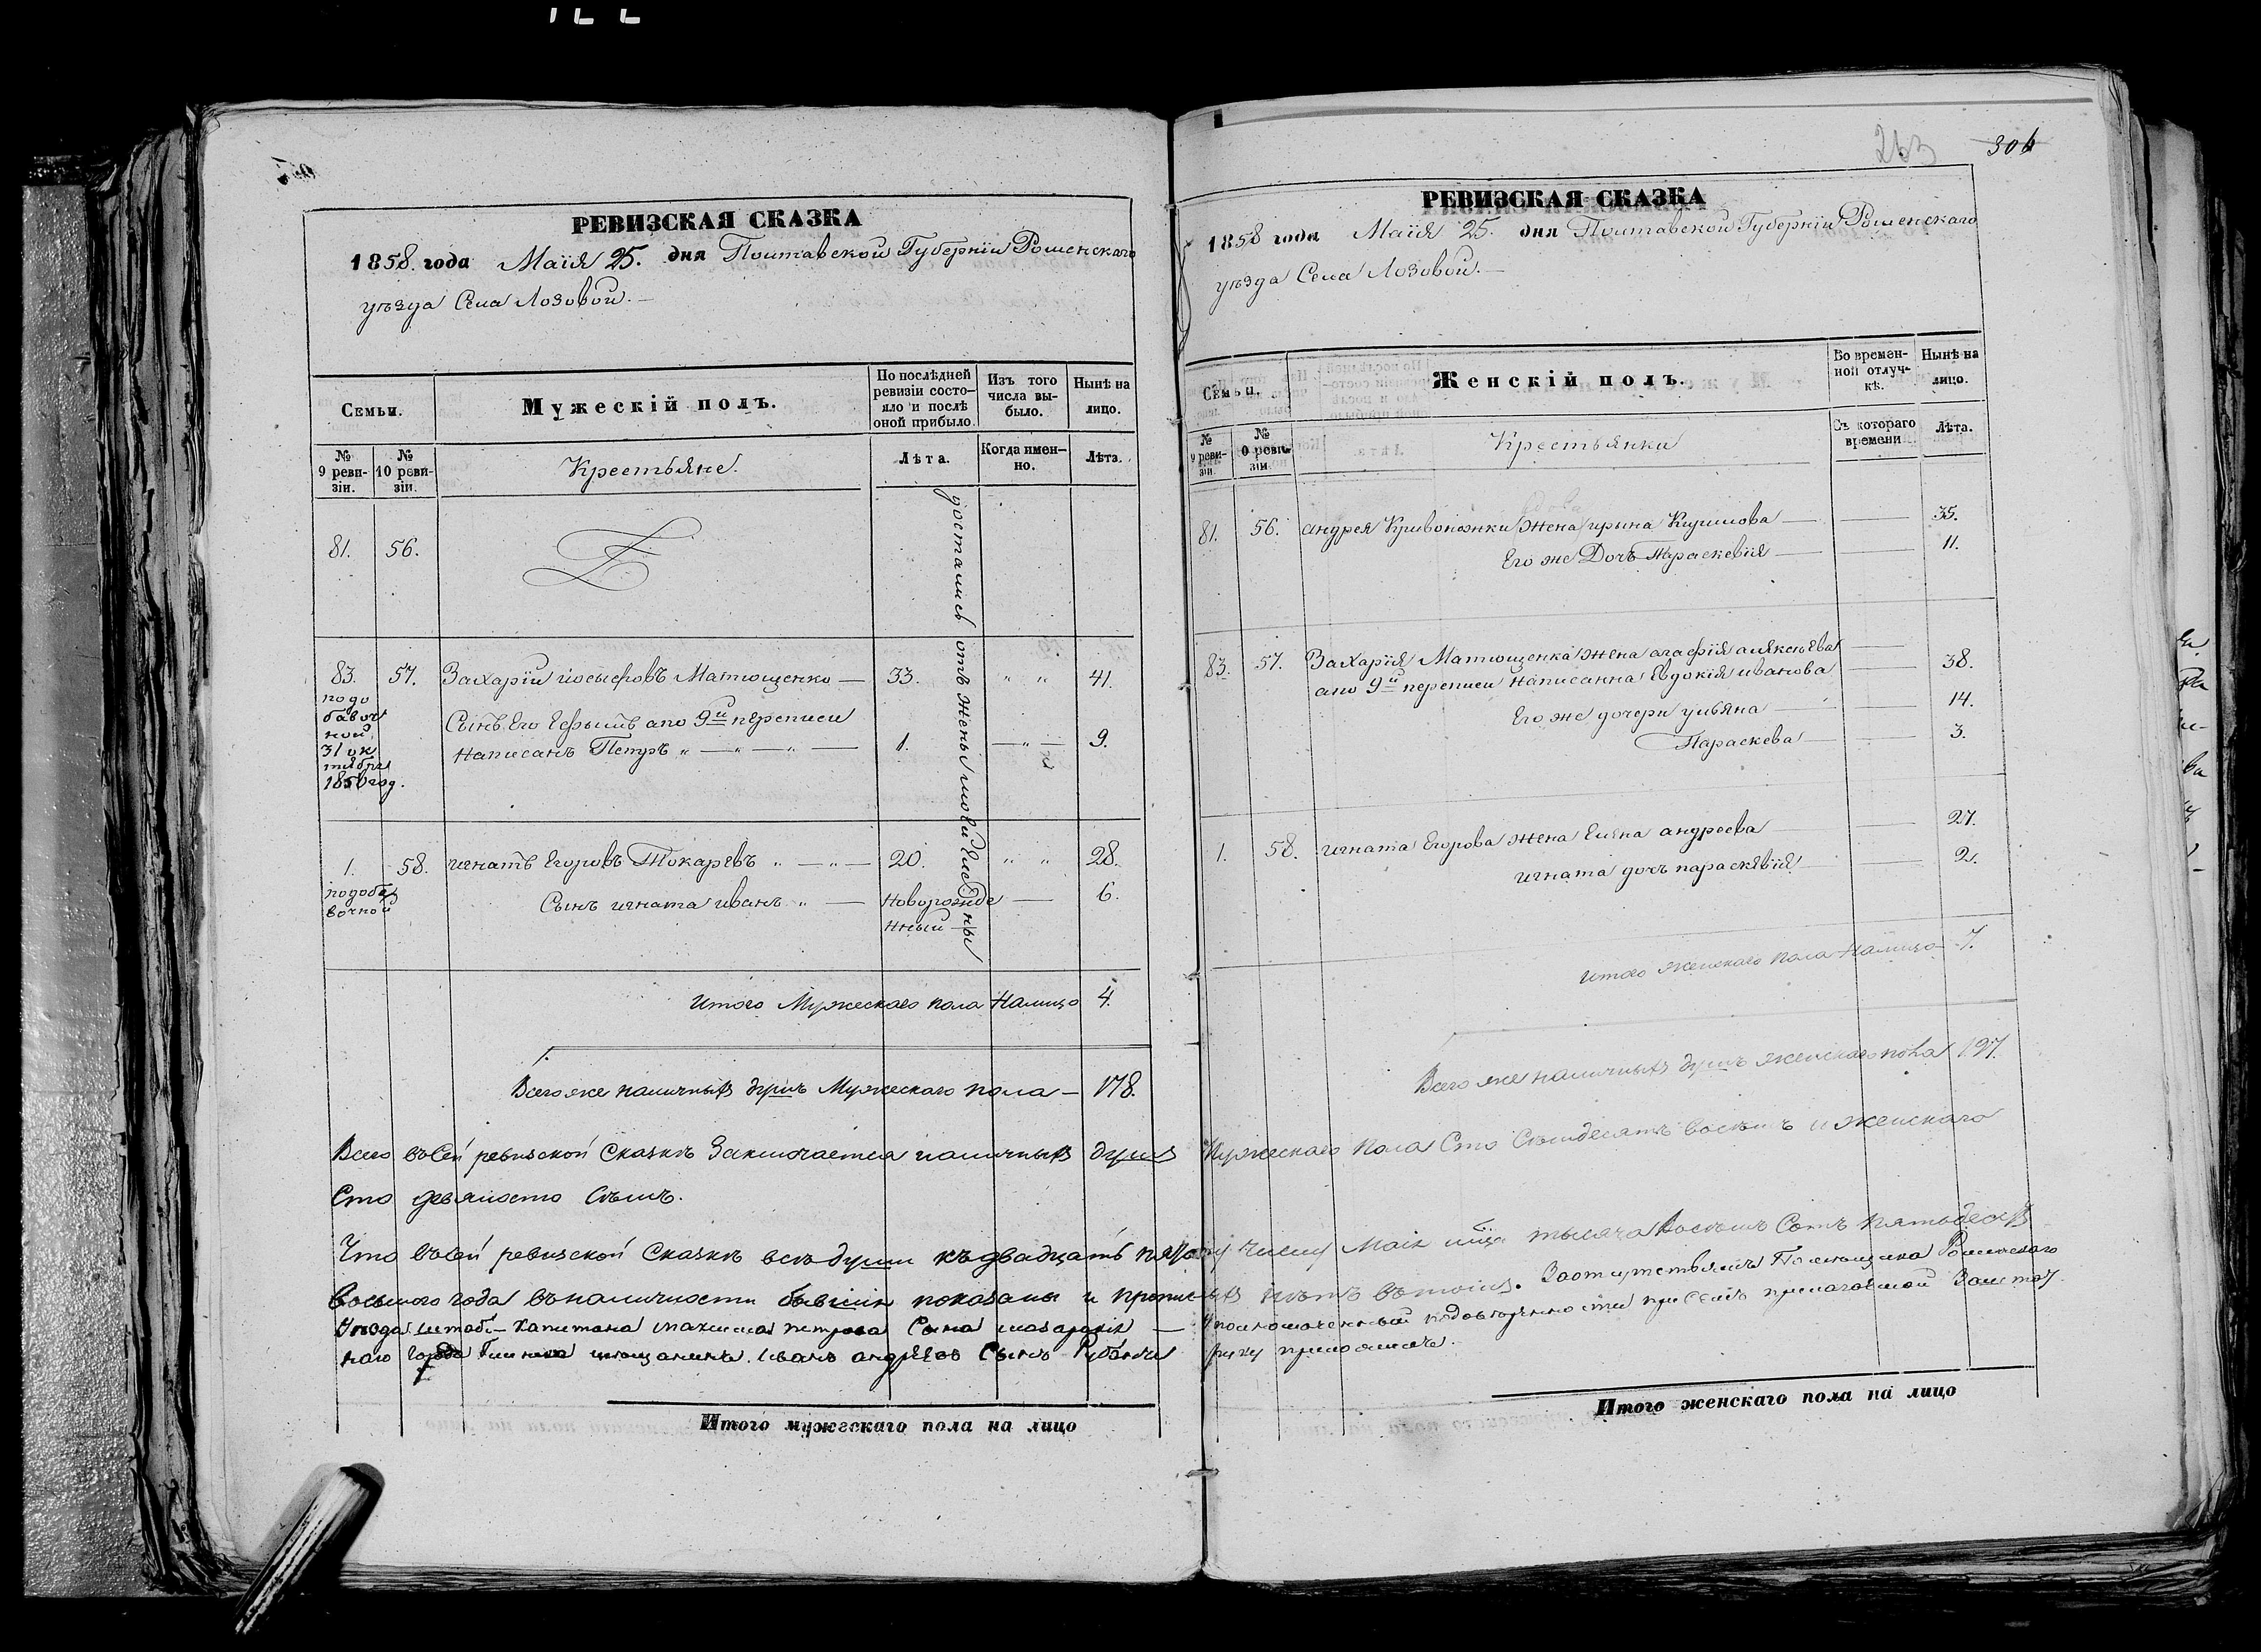 РЕВИЗСКАЯ СКАЗКА
1858. года Маія 25. дня Полтавской Губерніи Роменского
уѣзда Села Лозовой.
Семьи.
Мужескій полъ.
По послѣдней ревизіи состояло и послѣ оной прибыло.
Изъ того числа выбыло.
Нынѣ на лицо.
№ 9 ревизіи.
№ 10 ревизіи.
Крестьяне.
Лѣта.
Когда именно.
Лѣта.
достались отъ жены
81. 56.
83. 57. Захарій іосыфовъ Матющенко — 33. " " 41.
подобавочной 31 октября 1850 год.
Сынъ Его Ефымъ апо 9й переписи
написанъ Петръ " — " — " — 1. — " — 9.
1. 58. игнатъ Егоровъ Токаревъ " — " — 20. " " 28.
подобавочной
Сынъ игната иванъ " — Новорожденный — 6.
итого Мужескаго пола Налицо 4.
Всего же наличныхъ душъ Мужескаго пола — 178.
263
306
РЕВИЗСКАЯ СКАЗКА
1858 года Маія 25. дня Полтавской Губерніи Роменскаго
уѣзда Села Лозовой. —
Семьи.
Женскій полъ.
Во временной отлучкѣ.
Нынѣ на лицо.
№ 9 ревизіи.
№ 0 ревизіи
Крестьянки
Съ котораго времени
Лѣта.
81. 56. андрея Кривоножки жена ирына Климова — — 35.
Его же Дочь Параскевія — — 11.
83. 57. Захарія Матющенка жена агафія алексѣева —
апо 9й переписи написанна Евдокія иванова — 38.
Его же дочери ульяна — — 14.
Параскева — — 3.
1. 58. игната Егорова жена Елена андреева — — 27.
игната дочь параскѣвія — — 2.
итого женскаго пола Налицо — 7.
Всего же наличныхъ душъ женскаго пола 197.
Всего въсей ревизской Сказкѣ Заключается наличныхъ душъ Мужескаго пола Сто Семдесятъ восемъ и женскаго
Сто девяносто Семъ.
Что въсей ревизской Сказкѣ всѣ души къдвадцать пятому числу Маія мца тысяча Восемъ Сотъ пятьдесятъ
восьмого года въналичности бывшія показаны и прописныхъ нѣтъ
Заотсутствіемъ Помѣщика Роменскаго
Уѣзда Штабсъ-Капитана Максима петрова Сына
уполномоченный подовѣренности при Семъ прилагаемой
мѣщанинъ. Иванъ андрѣевъ Сынъ
руку приложилъ.
Итого мужескаго пола на лицо
Итого женскаго пола на лицо